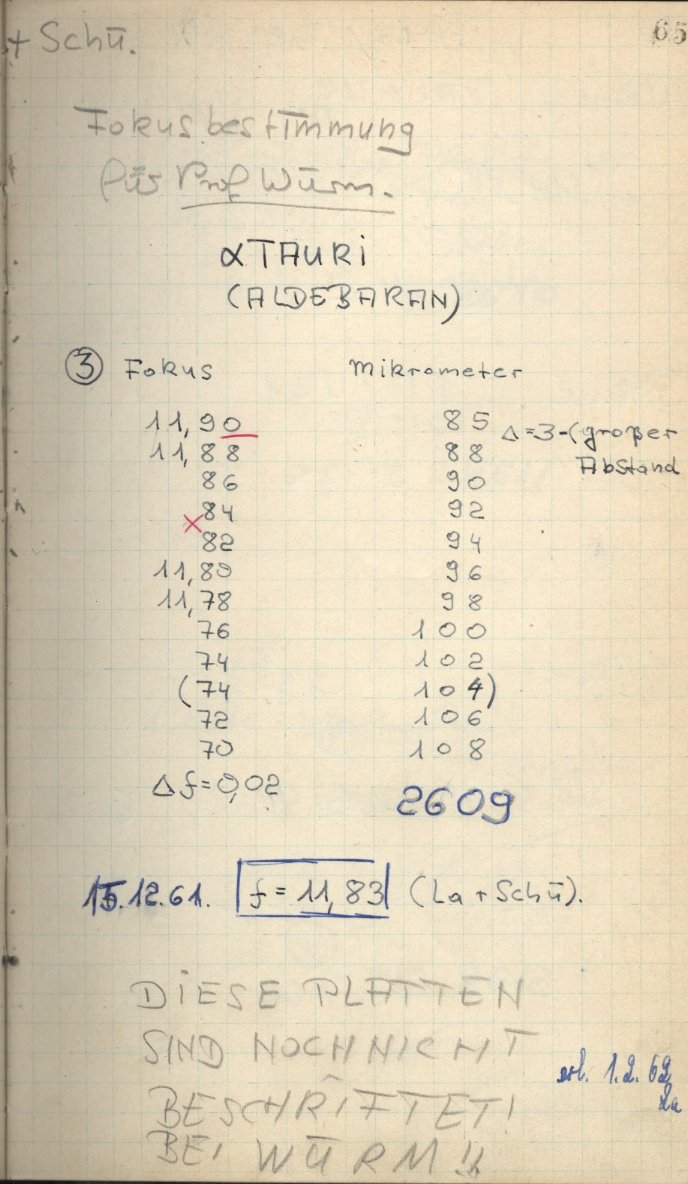 + Schü.
65
Fokusbestimmung
für Prof Wurm.
α TAURI
(ALDEBARAN)
③ Fokus Mikrometer
11,90 85 Δ=3-(großer
11,88 88 Abstand
86 90
× 84 92
82 94
11,80 96
11,78 98
76 100
74 102
(74 104)
72 106
70 108
Δf=0,02 2609
15.12.61. f = 11,83 (La + Schü).
DIESE PLATTEN
SIND NOCH NICHT
BESCHRIFTET!
BEI WURM!!
erl. 1.2.62
La